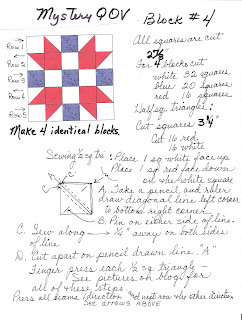 Mystery QOV Block #4
All squares are cut
2 7/8"
For 4 blocks cut
white 32 squares
blue 20 squares
red 16 squares
Half sq triangles:
Cut squares 3 1/4"
16 red
16 white
Row 1
Row 2
Row 3
Row 4
Row 5
Make 4 identical blocks.
Sewing 1/2 sq tri: Place 1 sq white face up
Place 1 sq red face down
on the white square
A. Take a pencil and ruler
draw diagonal line left corner
to bottom right corner.
B. Pin on either side of line.
C. Sew along 1/4" away on both sides
of line
D. Cut apart on pencil drawn line "A"
Finger press each 1/2 sq triangle
See pictures on blog for
all of these steps
Press all seams 1 direction and next row the other direction
See arrows above